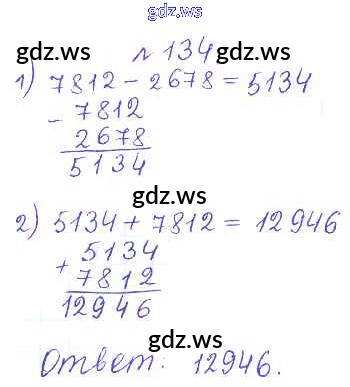 gdz.ws
gdz.ws № 134 gdz.ws
1) 7812 - 2678 = 5134
- 7812
2678
5134
gdz.ws
2) 5134 + 7812 = 12946
+ 5134
7812
gdz.ws 12946 gdz.ws
gdz.ws
Ответ: 12946.